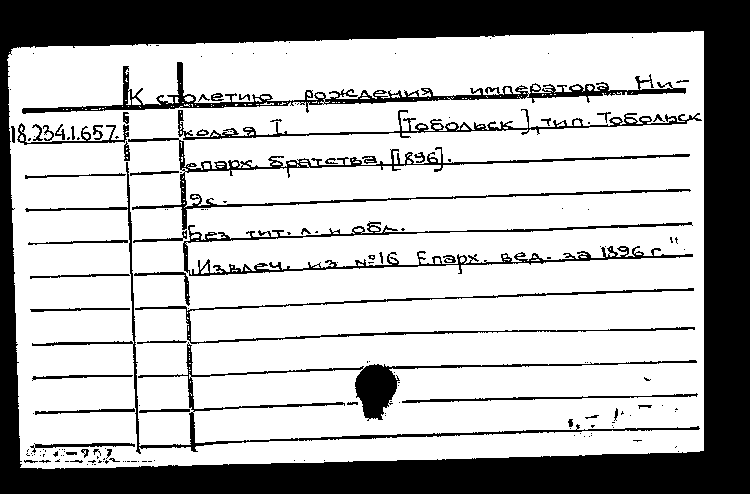 К столетию рождения императора Ни-
18.234.1.657. колая I. [Тобольск], тип. Тобольск
епарх. братства, [1896].
9с.
Без тит. л. и обл.
„Извлеч. из №16 Епарх. вед. за 1896 г."